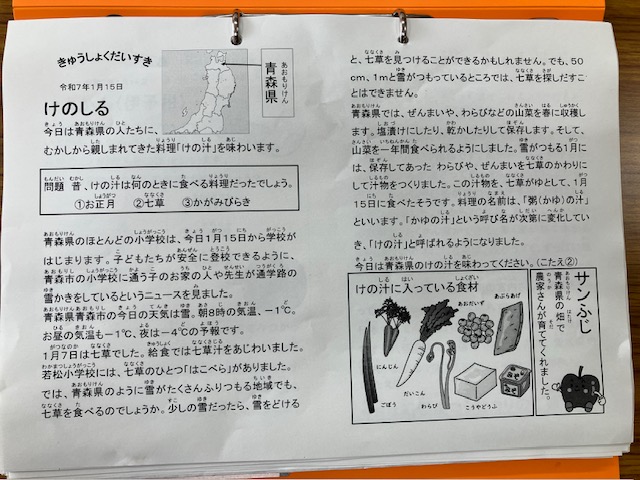 きゅうしょくだいすき
青森県
令和7年1月15日
けのしる
今日は青森県の人たちに、
むかしから親しまれてきた料理「けの汁」を味わいます。
問題 昔、けの汁は何のときに食べる料理だったでしょう。
①お正月 ②七草 ③かがみびらき
青森県のほとんどの小学校は、今日1月15日から学校が
はじまります。子どもたちが安全に登校できるように、
青森市の小学校に通う子のお家の人や先生が通学路の
雪かきをしているというニュースを見ました。
青森県青森市の今日の天気は雪。朝8時の気温、-1℃。
お昼の気温も-1℃、夜は-4℃の予報です。
1月7日は七草でした。給食では七草汁をあじわいました。
若松小学校には、七草のひとつ「はこべら」がありました。
では、青森県のように雪がたくさんふりつもる地域でも、
七草を食べるのでしょうか。少しの雪だったら、雪をどける
と、七草を見つけることができるかもしれません。でも、50
cm、1mと雪がつもっているところでは、七草を探しだすこ
とはできません。
青森県では、ぜんまいや、わらびなどの山菜を春に収穫し
ます。塩漬けにしたり、乾かしたりして保存します。そして、
山菜を一年間食べられるようにしました。雪がつもる1月に
は、保存してあった わらびや、ぜんまいを七草のかわりに
して汁物をつくりました。この汁物を、七草がゆとして、1月
15日に食べたそうです。料理の名前は、「粥(かゆ)の汁」
といいます。「かゆの汁」という呼び名が次第に変化してい
き、「けの汁」と呼ばれるようになりました。
今日は青森県のけの汁を味わってください。(こたえ②)
けの汁に入っている食材
ごぼう
にんじん
だいこん
わらび
あおだいず
あぶらあげ
こうやどうふ
サンふじ
青森県の畑で
農家さんが育ててくれました。